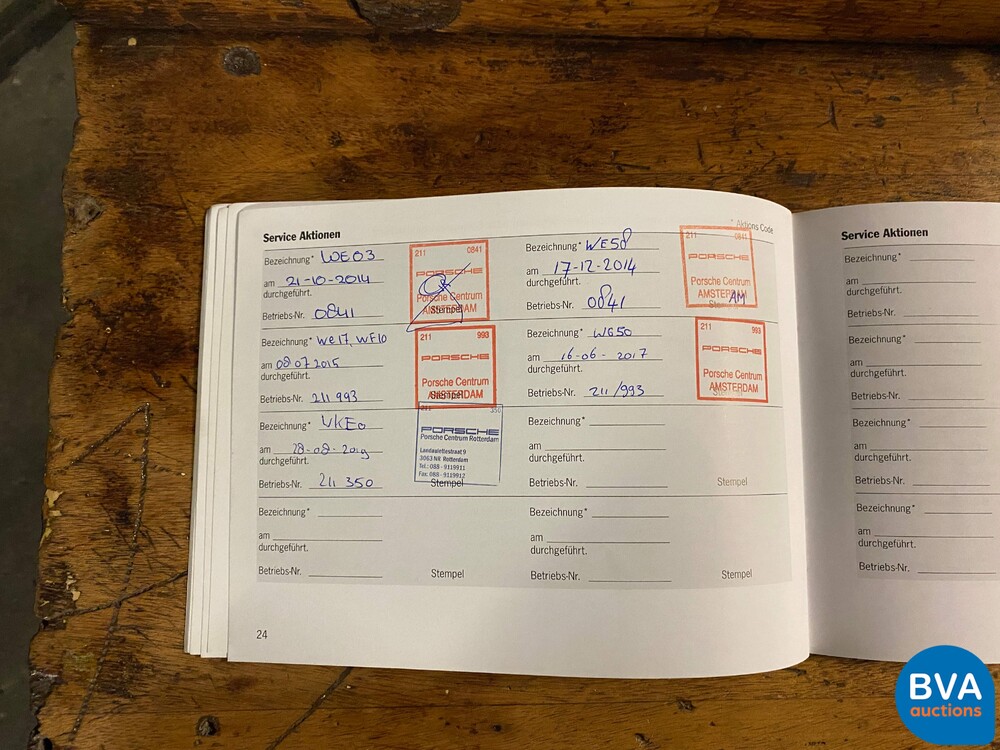 Service Aktionen
* Aktions Code
Bezeichnung* WE03
am 21-10-2014
durchgeführt.
Betriebs-Nr. 0841
211 0841
PORSCHE
Porsche Centrum
AMSTERDAM
Stempel
Bezeichnung* WE58
am 17-12-2014
durchgeführt.
Betriebs-Nr. 0841
211 0841
PORSCHE
Porsche Centrum
AMSTERDAM
AM
Bezeichnung* We17, WF10
am 08 07 2015
durchgeführt.
Betriebs-Nr. 211 993
211 993
PORSCHE
Porsche Centrum
AMSTERDAM
Stempel
Bezeichnung* WG50
am 16-06-2017
durchgeführt.
Betriebs-Nr. 211/993
211 993
PORSCHE
Porsche Centrum
AMSTERDAM
Bezeichnung*
am 28-08-2019
durchgeführt.
Betriebs-Nr. 211 350
211 350
PORSCHE
Porsche Centrum Rotterdam
Landaulettestraat 9
3063 NR Rotterdam
Tel.: 088 - 9119911
Fax: 088 - 9119912
Stempel
Bezeichnung*
am
durchgeführt.
Betriebs-Nr.
Stempel
Bezeichnung*
am
durchgeführt.
Betriebs-Nr.
Stempel
Bezeichnung*
am
durchgeführt.
Betriebs-Nr.
Stempel
24
Service Aktionen
Bezeichnung*
am
durchgeführt.
Betriebs-Nr.
Bezeichnung*
am
durchgeführt.
Betriebs-Nr.
Bezeichnung*
am
durchgeführt.
Betriebs-Nr.
Bezeichnung*
am
durchgeführt.
Betriebs-Nr.
BVA
auctions